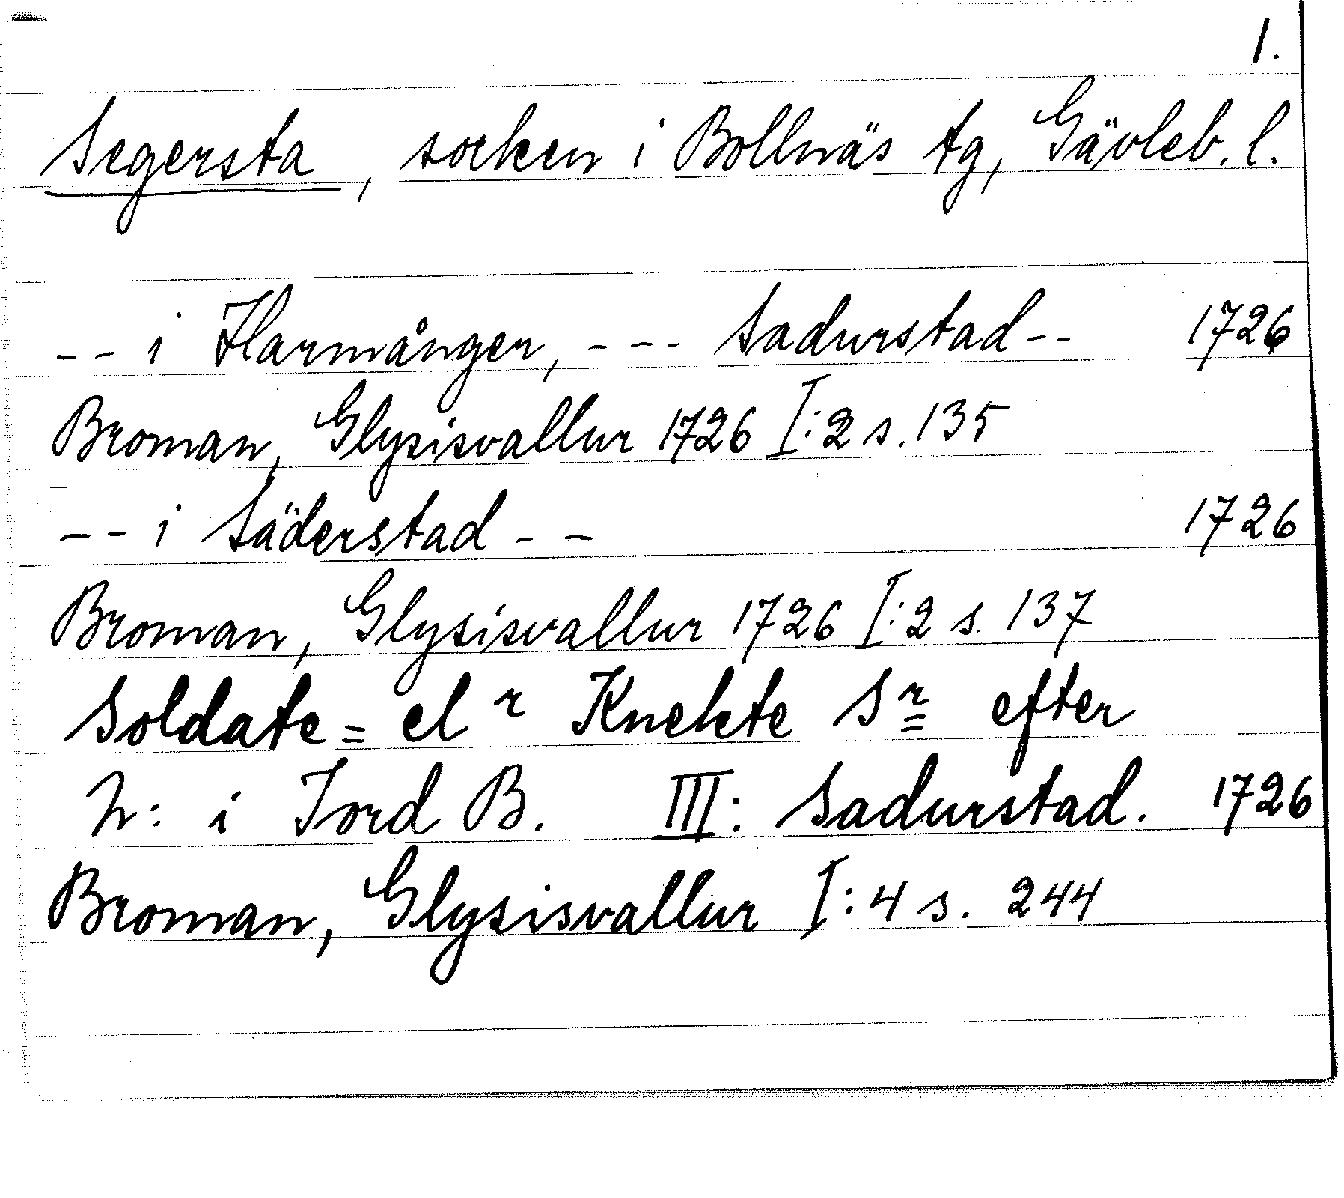 1.
Segersta, socken i Bollnäs tg, Gävleb. l.
-- i Harmånger, --- Sadurstad -- 1726
Broman, Glysisvallur 1726 I:2 s. 135
-- i Säderstad -- 1726
Broman, Glysisvallur 1726 I:2 s. 137
Soldate= el r Knekte Sr= efter
N: i Jord B. III: Sadurstad. 1726
Broman, Glysisvallur I:4 s. 244